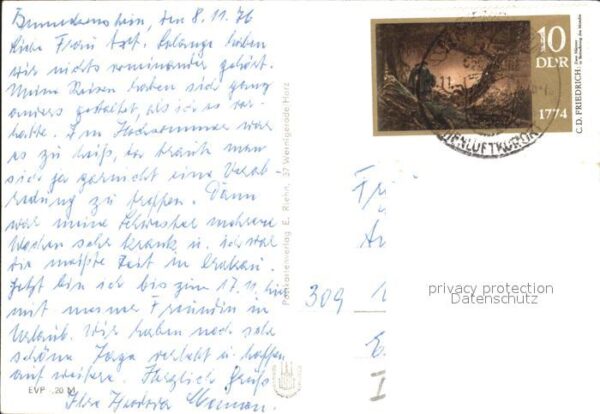 Braunlage, den 8.11.76
Liebe Frau Axt. Solange haben
wir nichts voneinander gehört.
Meine Reisen haben sich ganz
anders gestaltet, als ich es vor-
hatte. Im Hochsommer war
es zu heiß, da traute man
sich ja garnicht eine Verab-
redung zu treffen. Dann
war meine Schwester mehrere
Wochen sehr krank u. ich war
die meißte Zeit in
Jetzt bin ich bis zum 17.11. hier
mit meiner Freundin in
Urlaub. Wir haben noch sehr
schöne Tage verlebt u. hoffen
auf weitere. Herzlich grüßt
Ihre
EVP .20 M
Postkartenverlag E. Riehn, 37 Wernigerode/Harz
10
DDR
1774
C.D. FRIEDRICH:
Zwei Männer
in Betrachtung des Mondes
309
privacy protection
Datenschutz